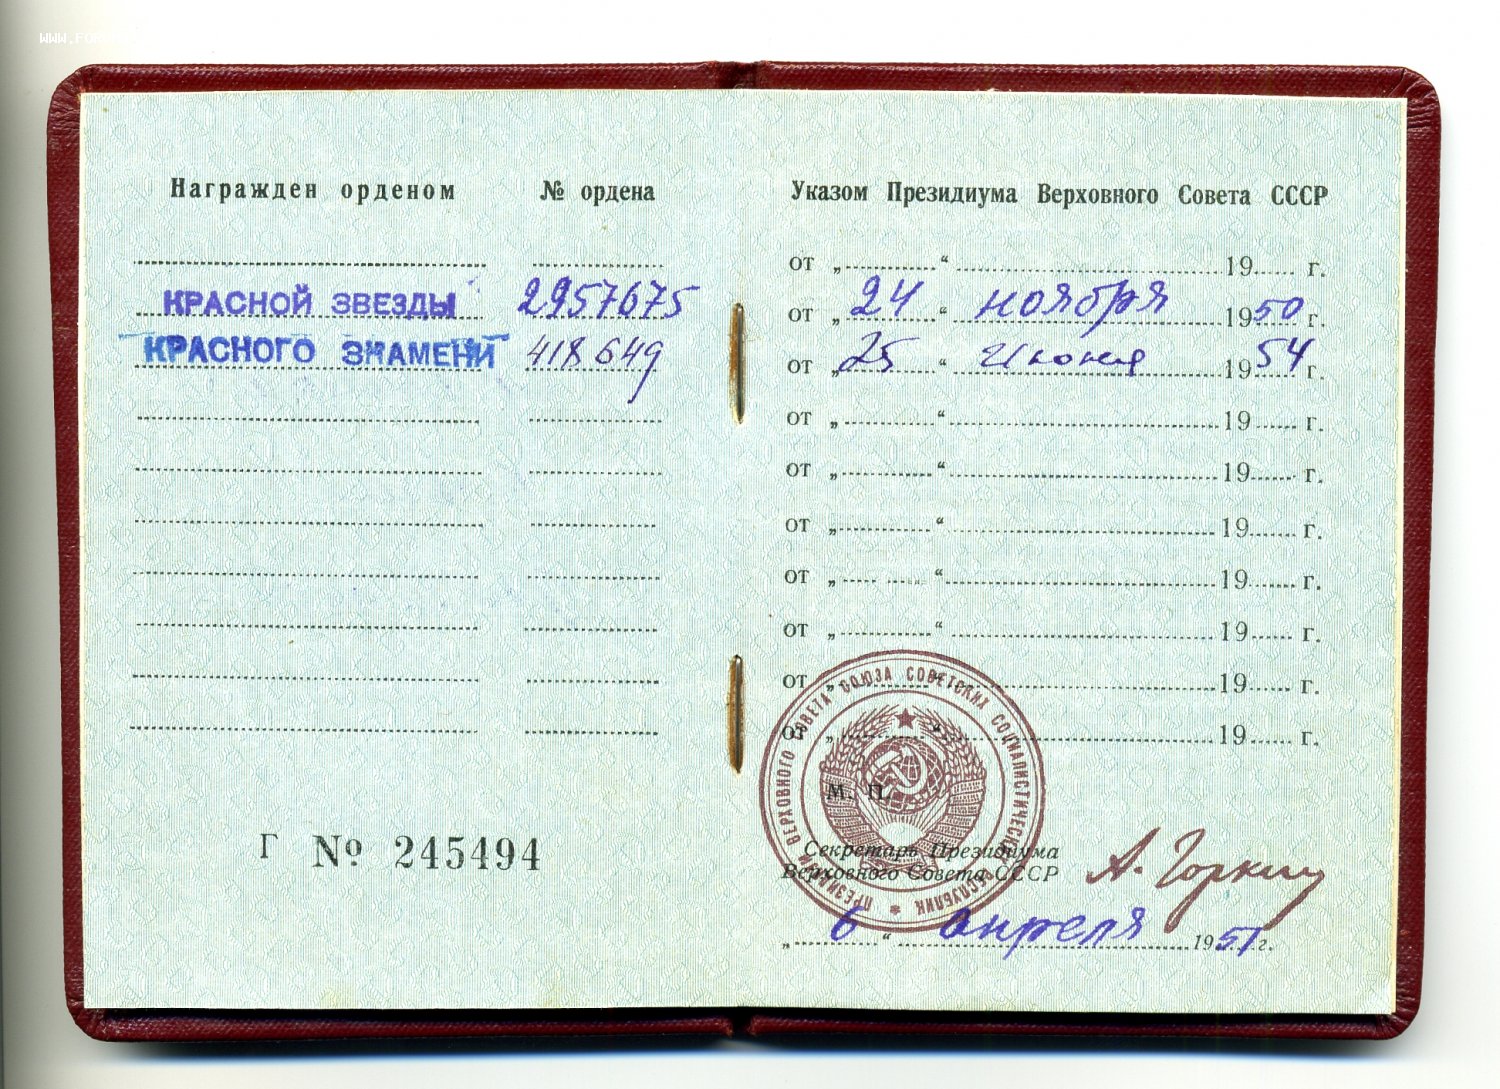 Награжден орденом № ордена
КРАСНОЙ ЗВЕЗДЫ 2957675
КРАСНОГО ЗНАМЕНИ 418649
Г № 245494
Указом Президиума Верховного Совета СССР
от „ “ 19 г.
от „ 24 “ ноября 1950 г.
от „ 25 “ Июня 1954 г.
от „ “ 19 г.
от „ “ 19 г.
от „ “ 19 г.
от „ “ 19 г.
от „ “ 19 г.
от „ “ 19 г.
от „ “ 19 г.
ПРЕЗИДИУМ ВЕРХОВНОГО СОВЕТА СОЮЗА СОВЕТСКИХ СОЦИАЛИСТИЧЕСКИХ РЕСПУБЛИК
М. П.
Секретарь Президиума
Верховного Совета СССР
А. Горкин
„ 6 “ апреля 1951 г.